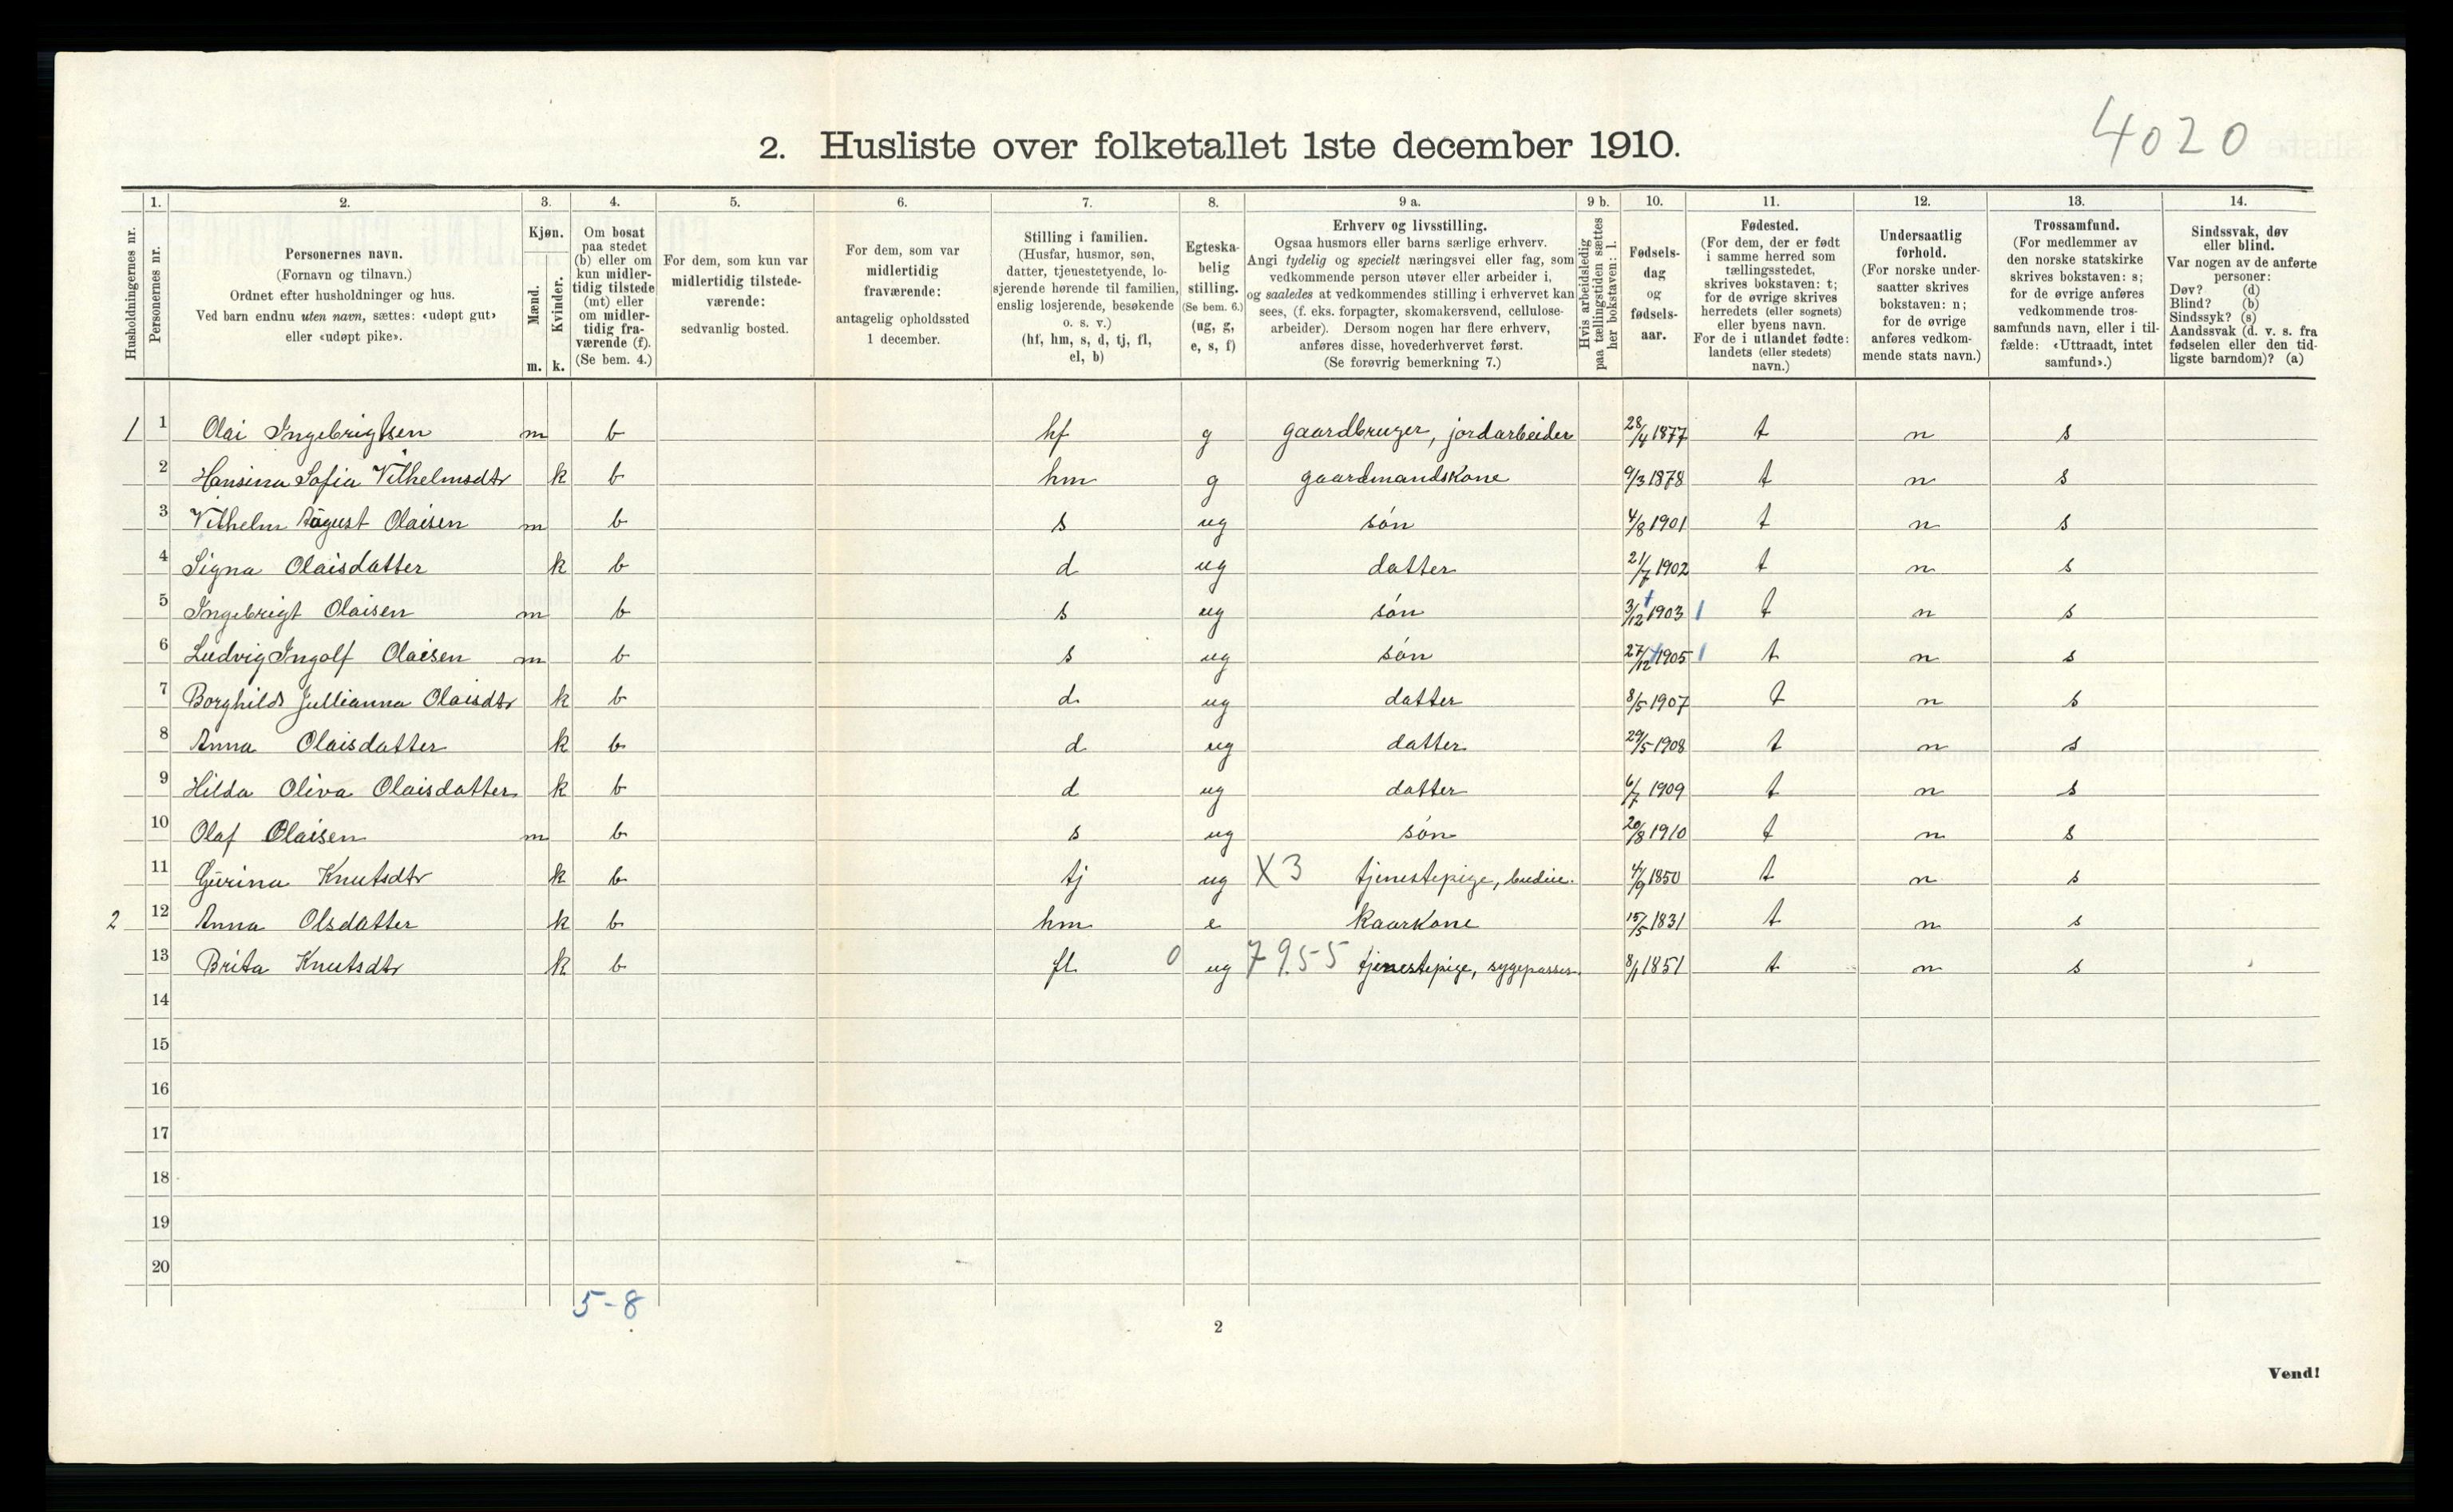 4020
2. Husliste over folketallet 1ste december 1910.
Husholdningernes nr.
1. Personernes nr.
2. Personernes navn.
(Fornavn og tilnavn.)
Ordnet efter husholdninger og hus.
Ved barn endnu uten navn, sættes: «udøpt gut»
eller «udøpt pike».
3. Kjøn.
Mænd. m.
Kvinder. k.
4. Om bosat
paa stedet
(b) eller om
kun midler-
tidig tilstede
(mt) eller
om midler-
tidig fra-
værende (f).
(Se bem. 4.)
5. For dem, som kun var
midlertidig tilstede-
værende:
sedvanlig bosted.
6. For dem, som var
midlertidig
fraværende:
antagelig opholdssted
1 december.
7. Stilling i familien.
(Husfar, husmor, søn,
datter, tjenestetyende, lo-
sjerende hørende til familien,
enslig losjerende, besøkende
o. s. v.)
(hf, hm, s, d, tj, fl,
el, b)
8. Egteska-
belig
stilling.
(Se bem. 6.)
(ug, g,
e, s, f)
9 a. Erhverv og livsstilling.
Ogsaa husmors eller barns særlige erhverv.
Angi tydelig og specielt næringsvei eller fag, som
vedkommende person utøver eller arbeider i,
og saaledes at vedkommendes stilling i erhvervet kan
sees, (f. eks. forpagter, skomakersvend, cellulose-
arbeider). Dersom nogen har flere erhverv,
anføres disse, hovederhvervet først.
(Se forøvrig bemerkning 7.)
9 b. Hvis arbeidsledig
paa tællingstiden sættes
her bokstaven: l.
10. Fødsels-
dag
og
fødsels-
aar.
11. Fødested.
(For dem, der er født
i samme herred som
tællingsstedet,
skrives bokstaven: t;
for de øvrige skrives
herredets (eller sognets)
eller byens navn.
For de i utlandet fødte:
landets (eller stedets)
navn.)
12. Undersaatlig
forhold.
(For norske under-
saatter skrives
bokstaven: n;
for de øvrige
anføres vedkom-
mende stats navn.)
13. Trossamfund.
(For medlemmer av
den norske statskirke
skrives bokstaven: s;
for de øvrige anføres
vedkommende tros-
samfunds navn, eller i til-
fælde: «Uttraadt, intet
samfund».)
14. Sindssvak, døv
eller blind.
Var nogen av de anførte
personer:
Døv? (d)
Blind? (b)
Sindssyk? (s)
Aandssvak (d. v. s. fra
fødselen eller den tid-
ligste barndom)? (a)
1 1 Olai Ingebrigtsen m b hf g gaardbruger, jordarbeider 28/4 1877 t n s
2 Hansina Sofia Vilhelmsdtr k b hm g gaardmandskone 9/3 1878 t n s
3 Vilhelm August Olaisen m b s ug søn 4/8 1901 t n s
4 Signa Olaisdatter k b d ug datter 21/7 1902 t n s
5 Ingebrigt Olaisen m b s ug søn 3/12 1903 t n s
6 Ludvig Ingolf Olaisen m b s ug søn 27/12 1905 t n s
7 Borghild Jullianna Olaisdtr k b d ug datter 8/5 1907 t n s
8 Anna Olaisdatter k b d ug datter 29/5 1908 t n s
9 Hilda Oliva Olaisdatter k b d ug datter 6/7 1909 t n s
10 Olaf Olaisen m b s ug søn 20/8 1910 t n s
11 Gurina Knutsdtr k b tj ug X3 tjenestepige, budeie. 4/9 1850 t n s
2 12 Anna Olsdatter k b hm e kaarkone 15/5 1831 t n s
13 Brita Knutsdtr k b fl 0 ug 7955 tjenestepige, sygepasser. 8/1 1851 t n s
14
15
16
17
18
19
20
5-8
2
Vend!